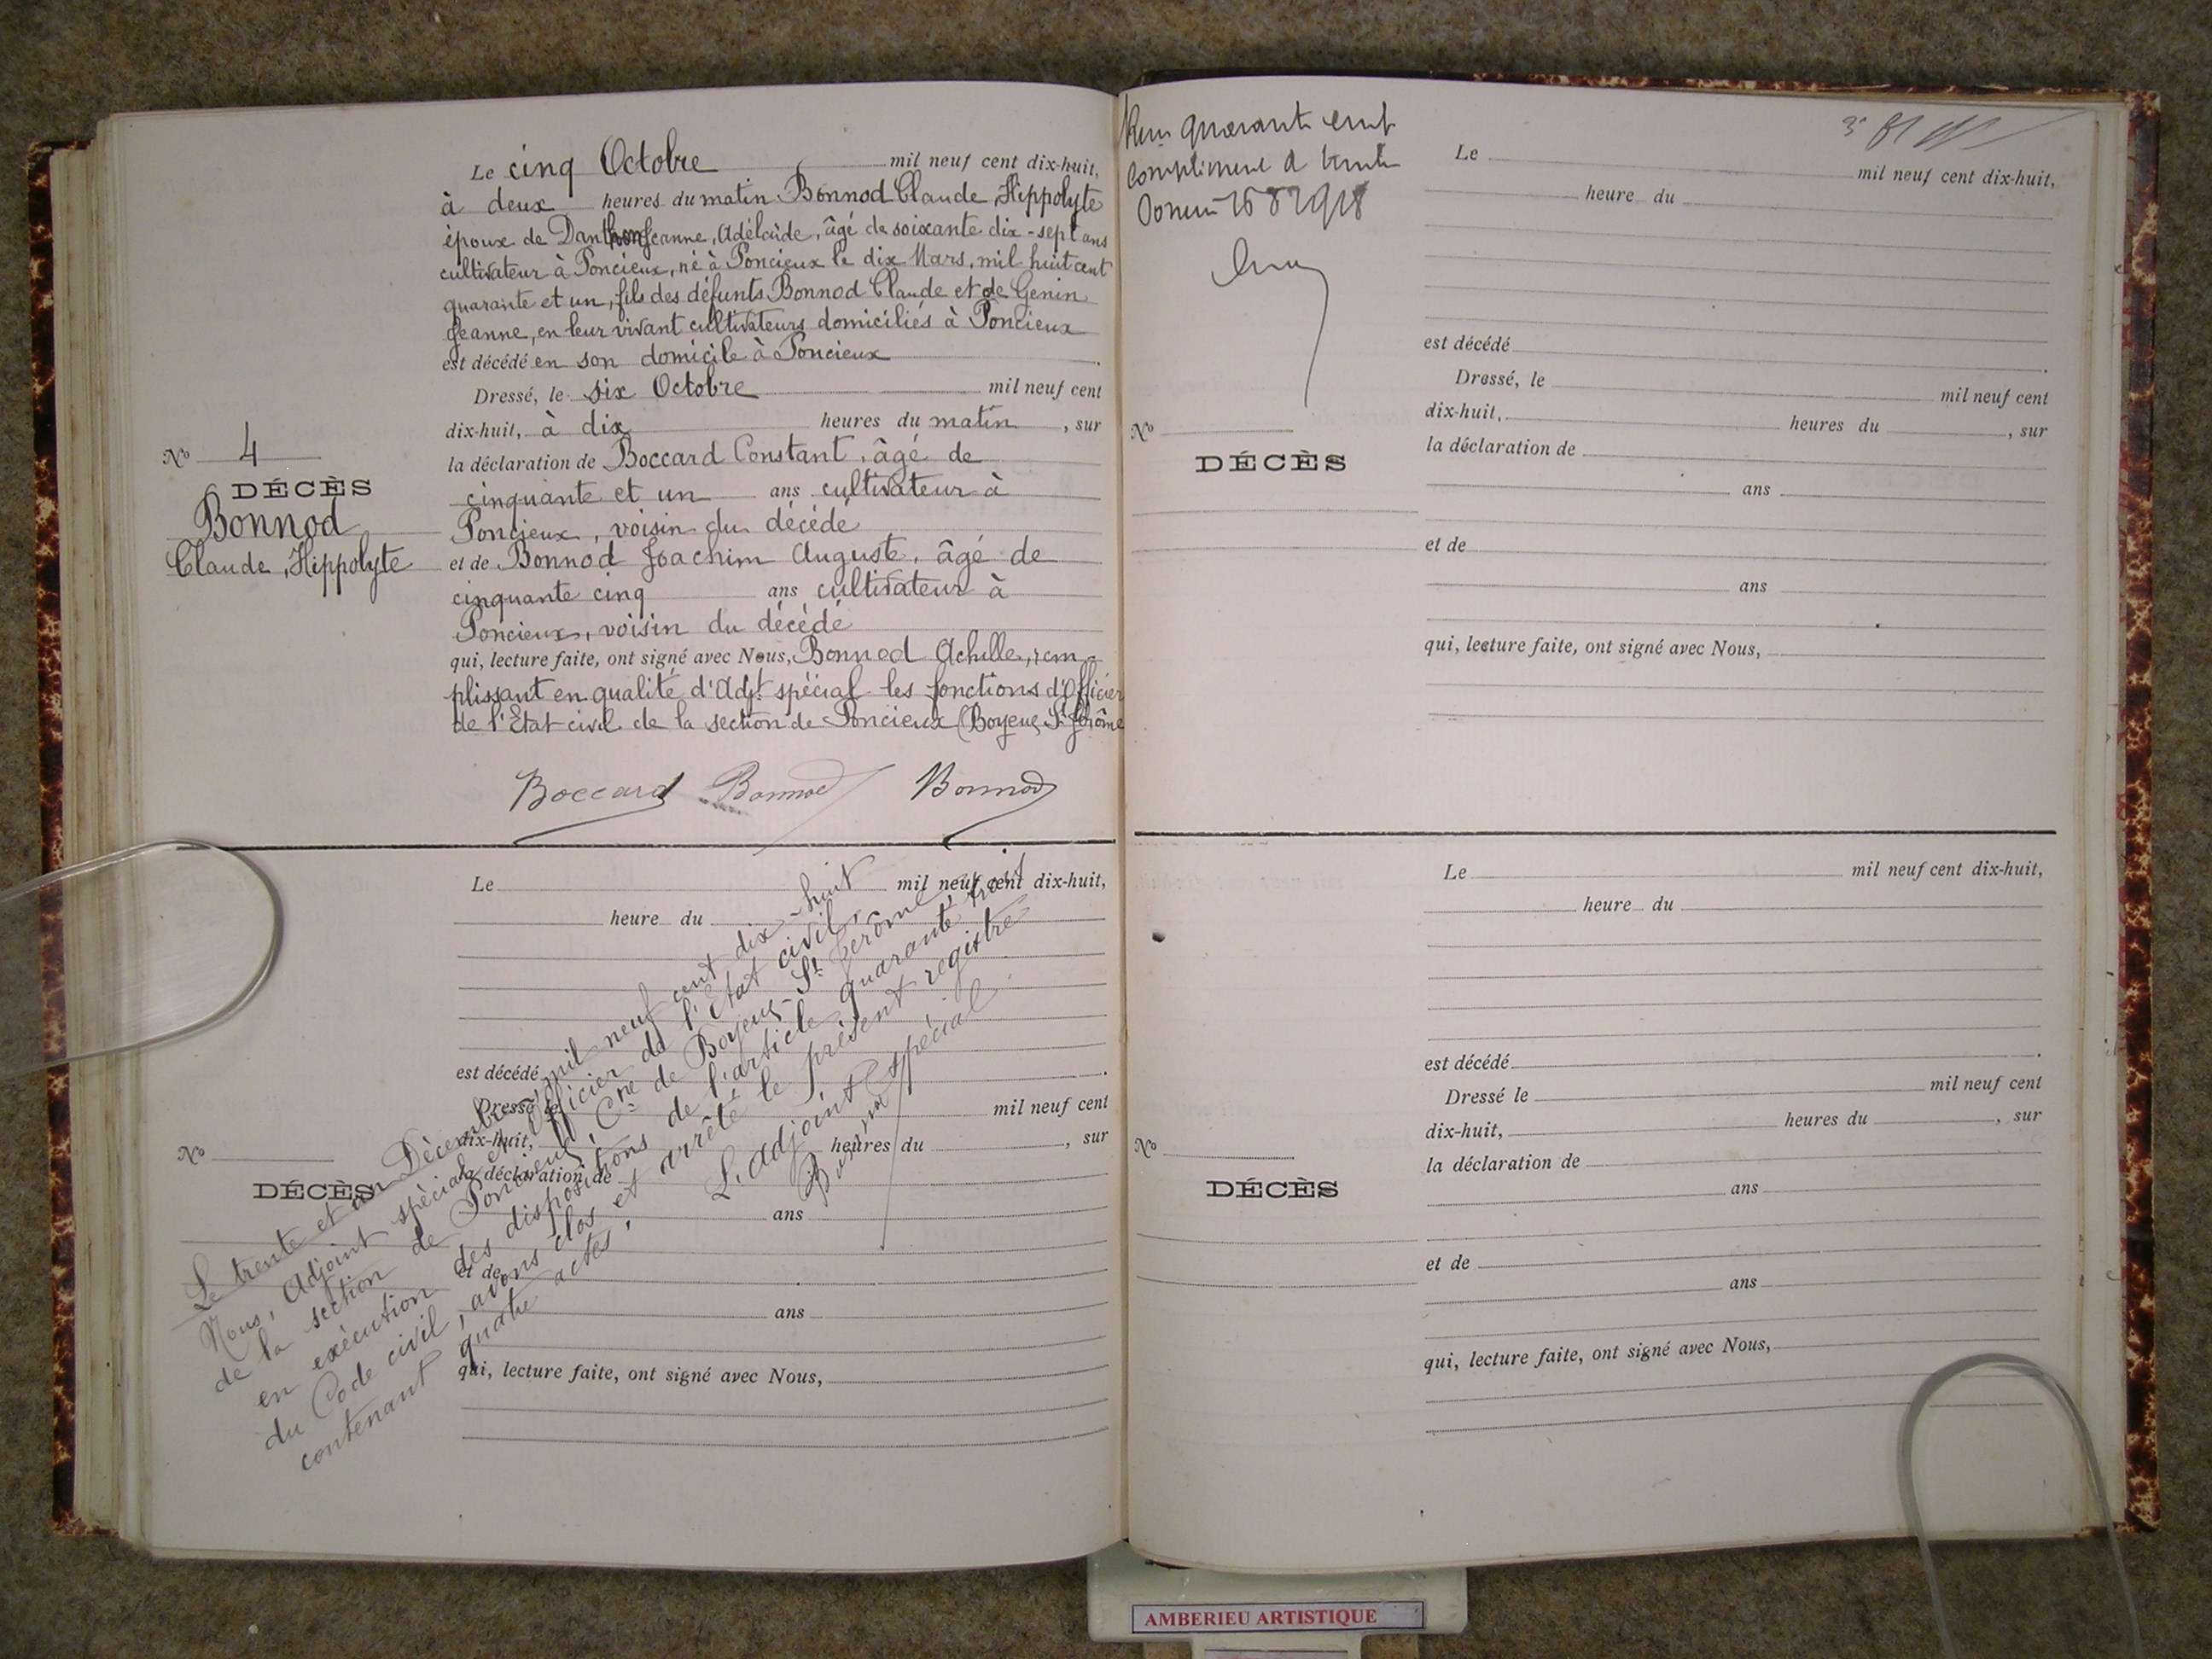 Le cinq Octobre mil neuf cent dix-huit,
à deux heures du matin Bonnod Claude, Hippolyte
époux de Danthon Jeanne, Adélaïde, âgé de soixante dix-sept ans
cultivateur à Poncieux, né à Poncieux le dix Mars, mil huit cent
quarante et un, fils des défunts Bonnod Claude et de Genin
Jeanne, en leur vivant cultivateurs domiciliés à Poncieux
est décédé en son domicile à Poncieux.
Dressé, le six Octobre mil neuf cent
dix-huit, à dix heures du matin, sur
la déclaration de Boccard Constant, âgé de
cinquante et un ans cultivateur à
Poncieux, voisin du décédé
et de Bonnod Joachim Auguste, âgé de
cinquante cinq ans cultivateur à
Poncieux, voisin du décédé
qui, lecture faite, ont signé avec Nous, Bonnod Achille, rem-
plissant en qualité d'Adjt spécial les fonctions d'Officier
de l'Etat civil de la section de Poncieux (Boyeux St Jérôme
Boccard Bonnod Bonnod
No 4
DÉCÈS
Bonnod
Claude, Hippolyte
Le mil neuf cent dix-huit,
heure du
est décédé .
Dressé le mil neuf cent
dix-huit, heures du , sur
la déclaration de
ans
et de
ans
qui, lecture faite, ont signé avec Nous,
No
DÉCÈS
Le trente et un Décembre mil neuf cent dix-huit
Nous, Adjoint spécial et Officier de l'Etat civil,
de la section de Poncieux, Cne de Boyeux-St Jérôme
en exécution des dispositions de l'article quarante trois
du Code civil, avons clos et arrêté le présent registre
contenant quatre actes.
L'adjoint spécial
Bonnod
quarante
Le mil neuf cent dix-huit,
heure du
est décédé .
Dressé, le mil neuf cent
dix-huit, heures du , sur
la déclaration de
ans
et de
ans
qui, lecture faite, ont signé avec Nous,
No
DÉCÈS
Le mil neuf cent dix-huit,
heure du
est décédé .
Dressé le mil neuf cent
dix-huit, heures du , sur
la déclaration de
ans
et de
ans
qui, lecture faite, ont signé avec Nous,
No
DÉCÈS
AMBERIEU ARTISTIQUE